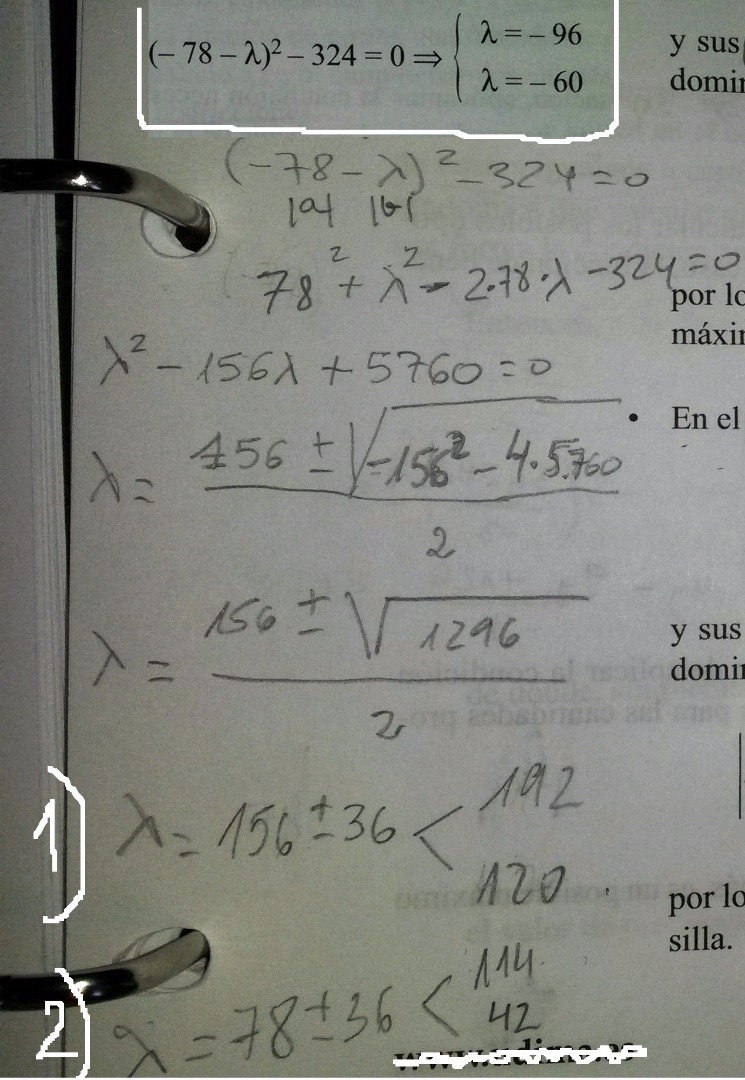 (– 78 – λ)² – 324 = 0 ⇒ { λ = – 96
λ = – 60
y sus
domin
(-78 - λ)² - 324 = 0
|a| |b|
78² + λ² - 2·78·λ - 324 = 0
por lo
máxin
λ² - 156λ + 5760 = 0
• En el
λ = 156 ± √-156² - 4·5.760
2
λ = 156 ± √1296
2
y sus
domin
1) λ = 156 ± 36 < 192
120
por lo
silla.
2) λ = 78 ± 36 < 114
42